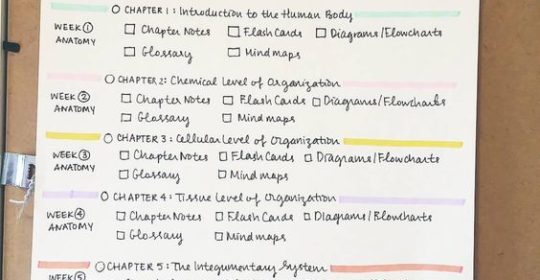 CHAPTER 1: Introduction to the Human Body
WEEK 1 Chapter Notes Flash Cards Diagrams/Flowcharts
ANATOMY Glossary Mind maps
CHAPTER 2: Chemical Level of Organization
WEEK 2 Chapter Notes Flash Cards Diagrams/Flowcharts
ANATOMY Glossary Mind maps
CHAPTER 3: Cellular Level of Organization
WEEK 3 Chapter Notes Flash Cards Diagrams/Flowcharts
ANATOMY Glossary Mind maps
CHAPTER 4: Tissue Level of Organization
WEEK 4 Chapter Notes Flash Cards Diagrams/Flowcharts
ANATOMY Glossary Mind maps
CHAPTER 5: The Integumentary System
WEEK 5